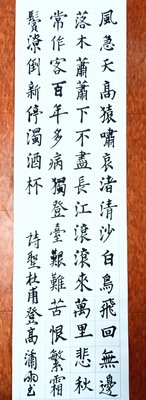 風急天高猿嘯哀渚清沙白鳥飛回無邊
落木蕭蕭下不盡長江滾滾來萬里悲秋
常作客百年多病獨登臺艱難苦恨繁霜
鬢潦倒新停濁酒杯 詩聖杜甫登高